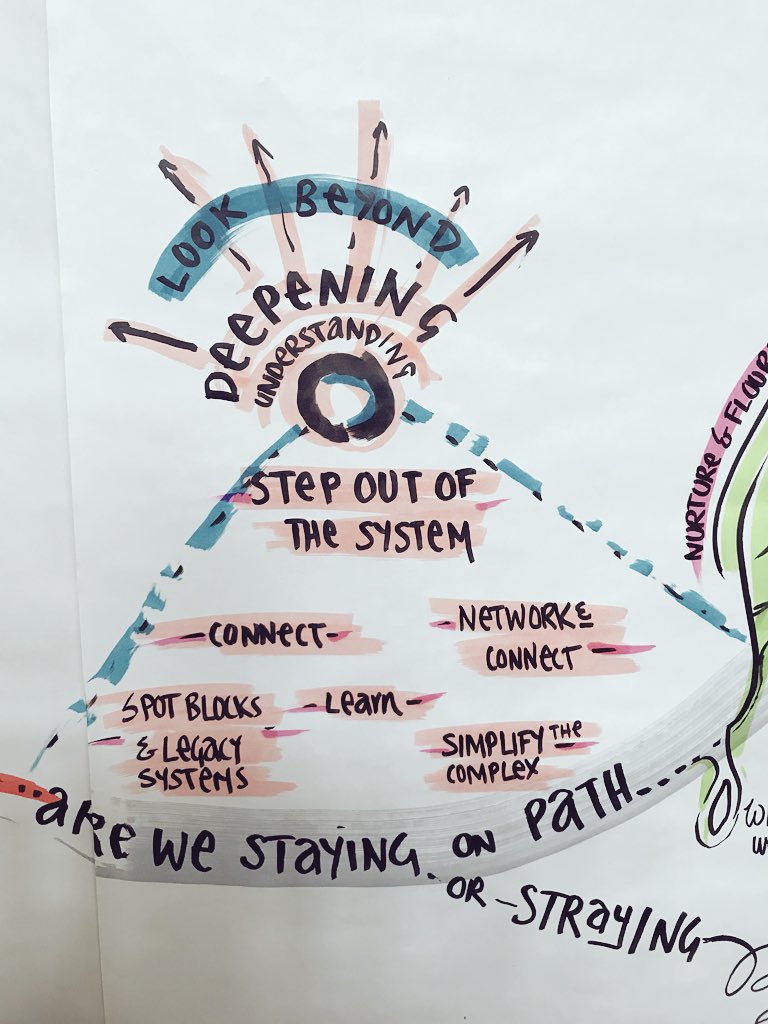 LOOK BEYOND
DEEPENING
UNDERSTANDING
STEP OUT OF
THE SYSTEM
-CONNECT-
NETWORK &
CONNECT
SPOT BLOCKS
& LEGACY
SYSTEMS
-LEARN-
SIMPLIFY THE
COMPLEX
ARE WE STAYING ON PATH....
OR -STRAYING
NURTURE &